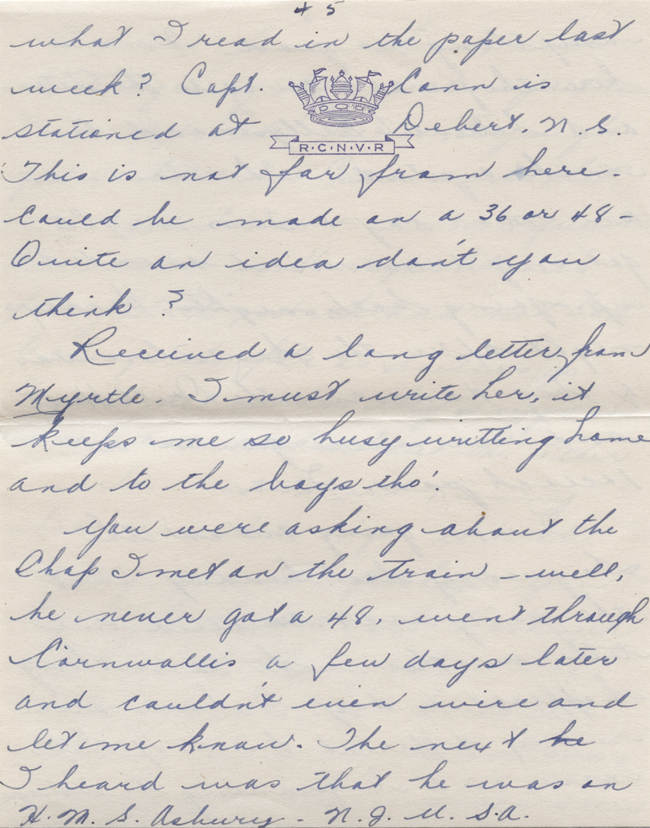 45
what I read in the paper last
week? Capt. Conn is
stationed at Debert, N.S.
R·C·N·V·R
This is not far from here -
could be made on a 36 or 48 -
Quite an idea don't you
think?
Received a long letter from
Myrtle. I must write her, it
keeps me so busy writting home
and to the boys tho'.
You were asking about the
Chap I met on the train - well,
he never got a 48, went through
Cornwallis a few days later
and couldn't even wire and
let me know. The next he
I heard was that he was on
H.M.S. Asbury - N.J. U.S.A.